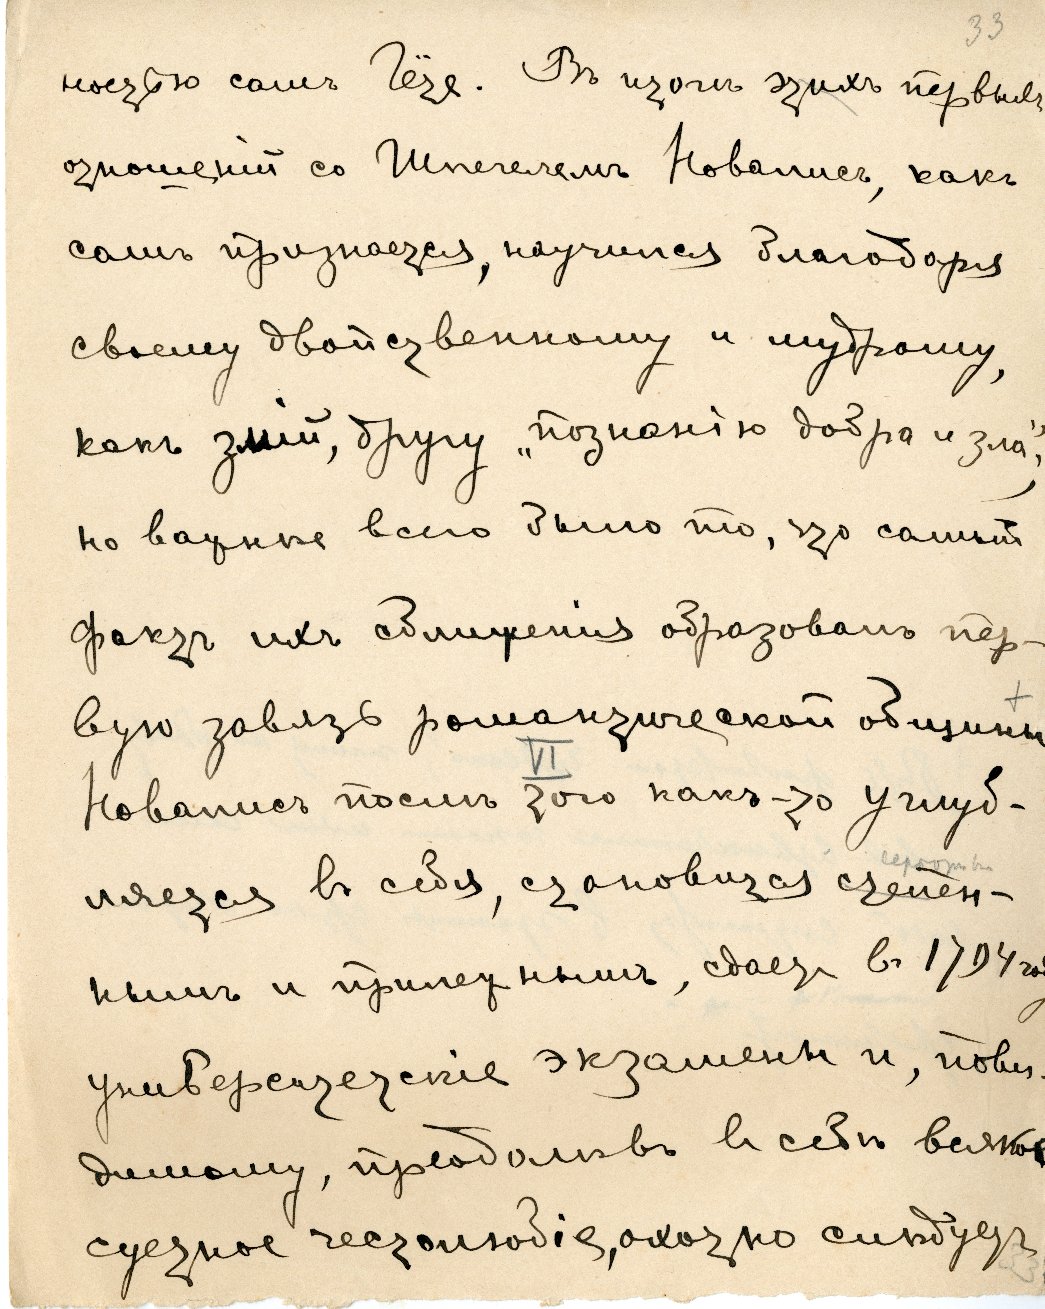 33
ностью самъ Гёте. Въ итогѣ этихъ первыхъ
отношеній со Шлегелемъ Новалисъ, какъ
самъ признается, научился благодаря
своему двойственному и мудрому,
какъ змій, другу „познанію добра и зла“,
но важнѣе всего было то, что самый
фактъ ихъ сближенія образовалъ пер-
вую завязь романтической общины
+
VI
Новалисъ послѣ того какъ-то углуб-
ляется въ себя, становится степен-
нымъ и прилежнымъ, сдаетъ въ 1794 год
университетскіе экзамены и, пови-
димому, преодолѣвъ въ себѣ всякое
суетное честолюбіе, охотно слѣдуетъ